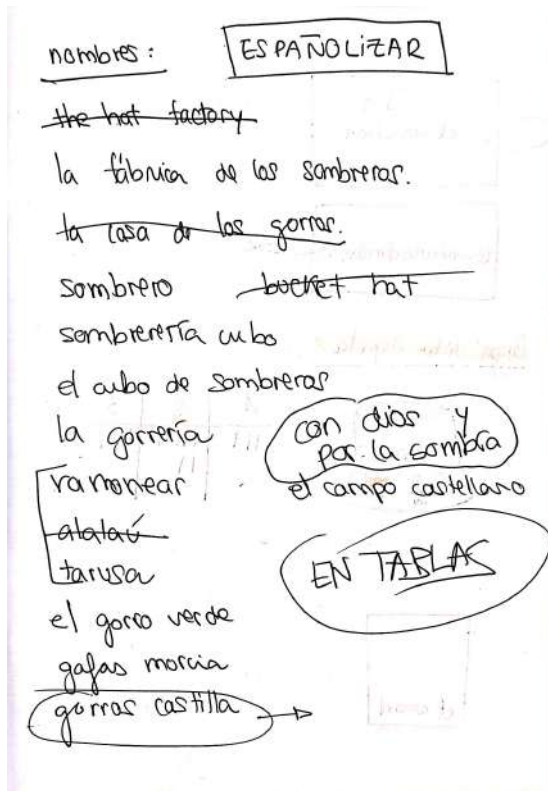 nombres: ESPAÑOLIZAR
the hat factory
la fábrica de los sombreros.
la casa de las gorras.
sombrero bucket hat
sombrerería cubo
el cubo de sombreros
la gorrería
con dios y
por la sombra
ramonear
el campo castellano
alalaú
tarusa
EN TABLAS
el gorro verde
gafas morcia
gorras castilla